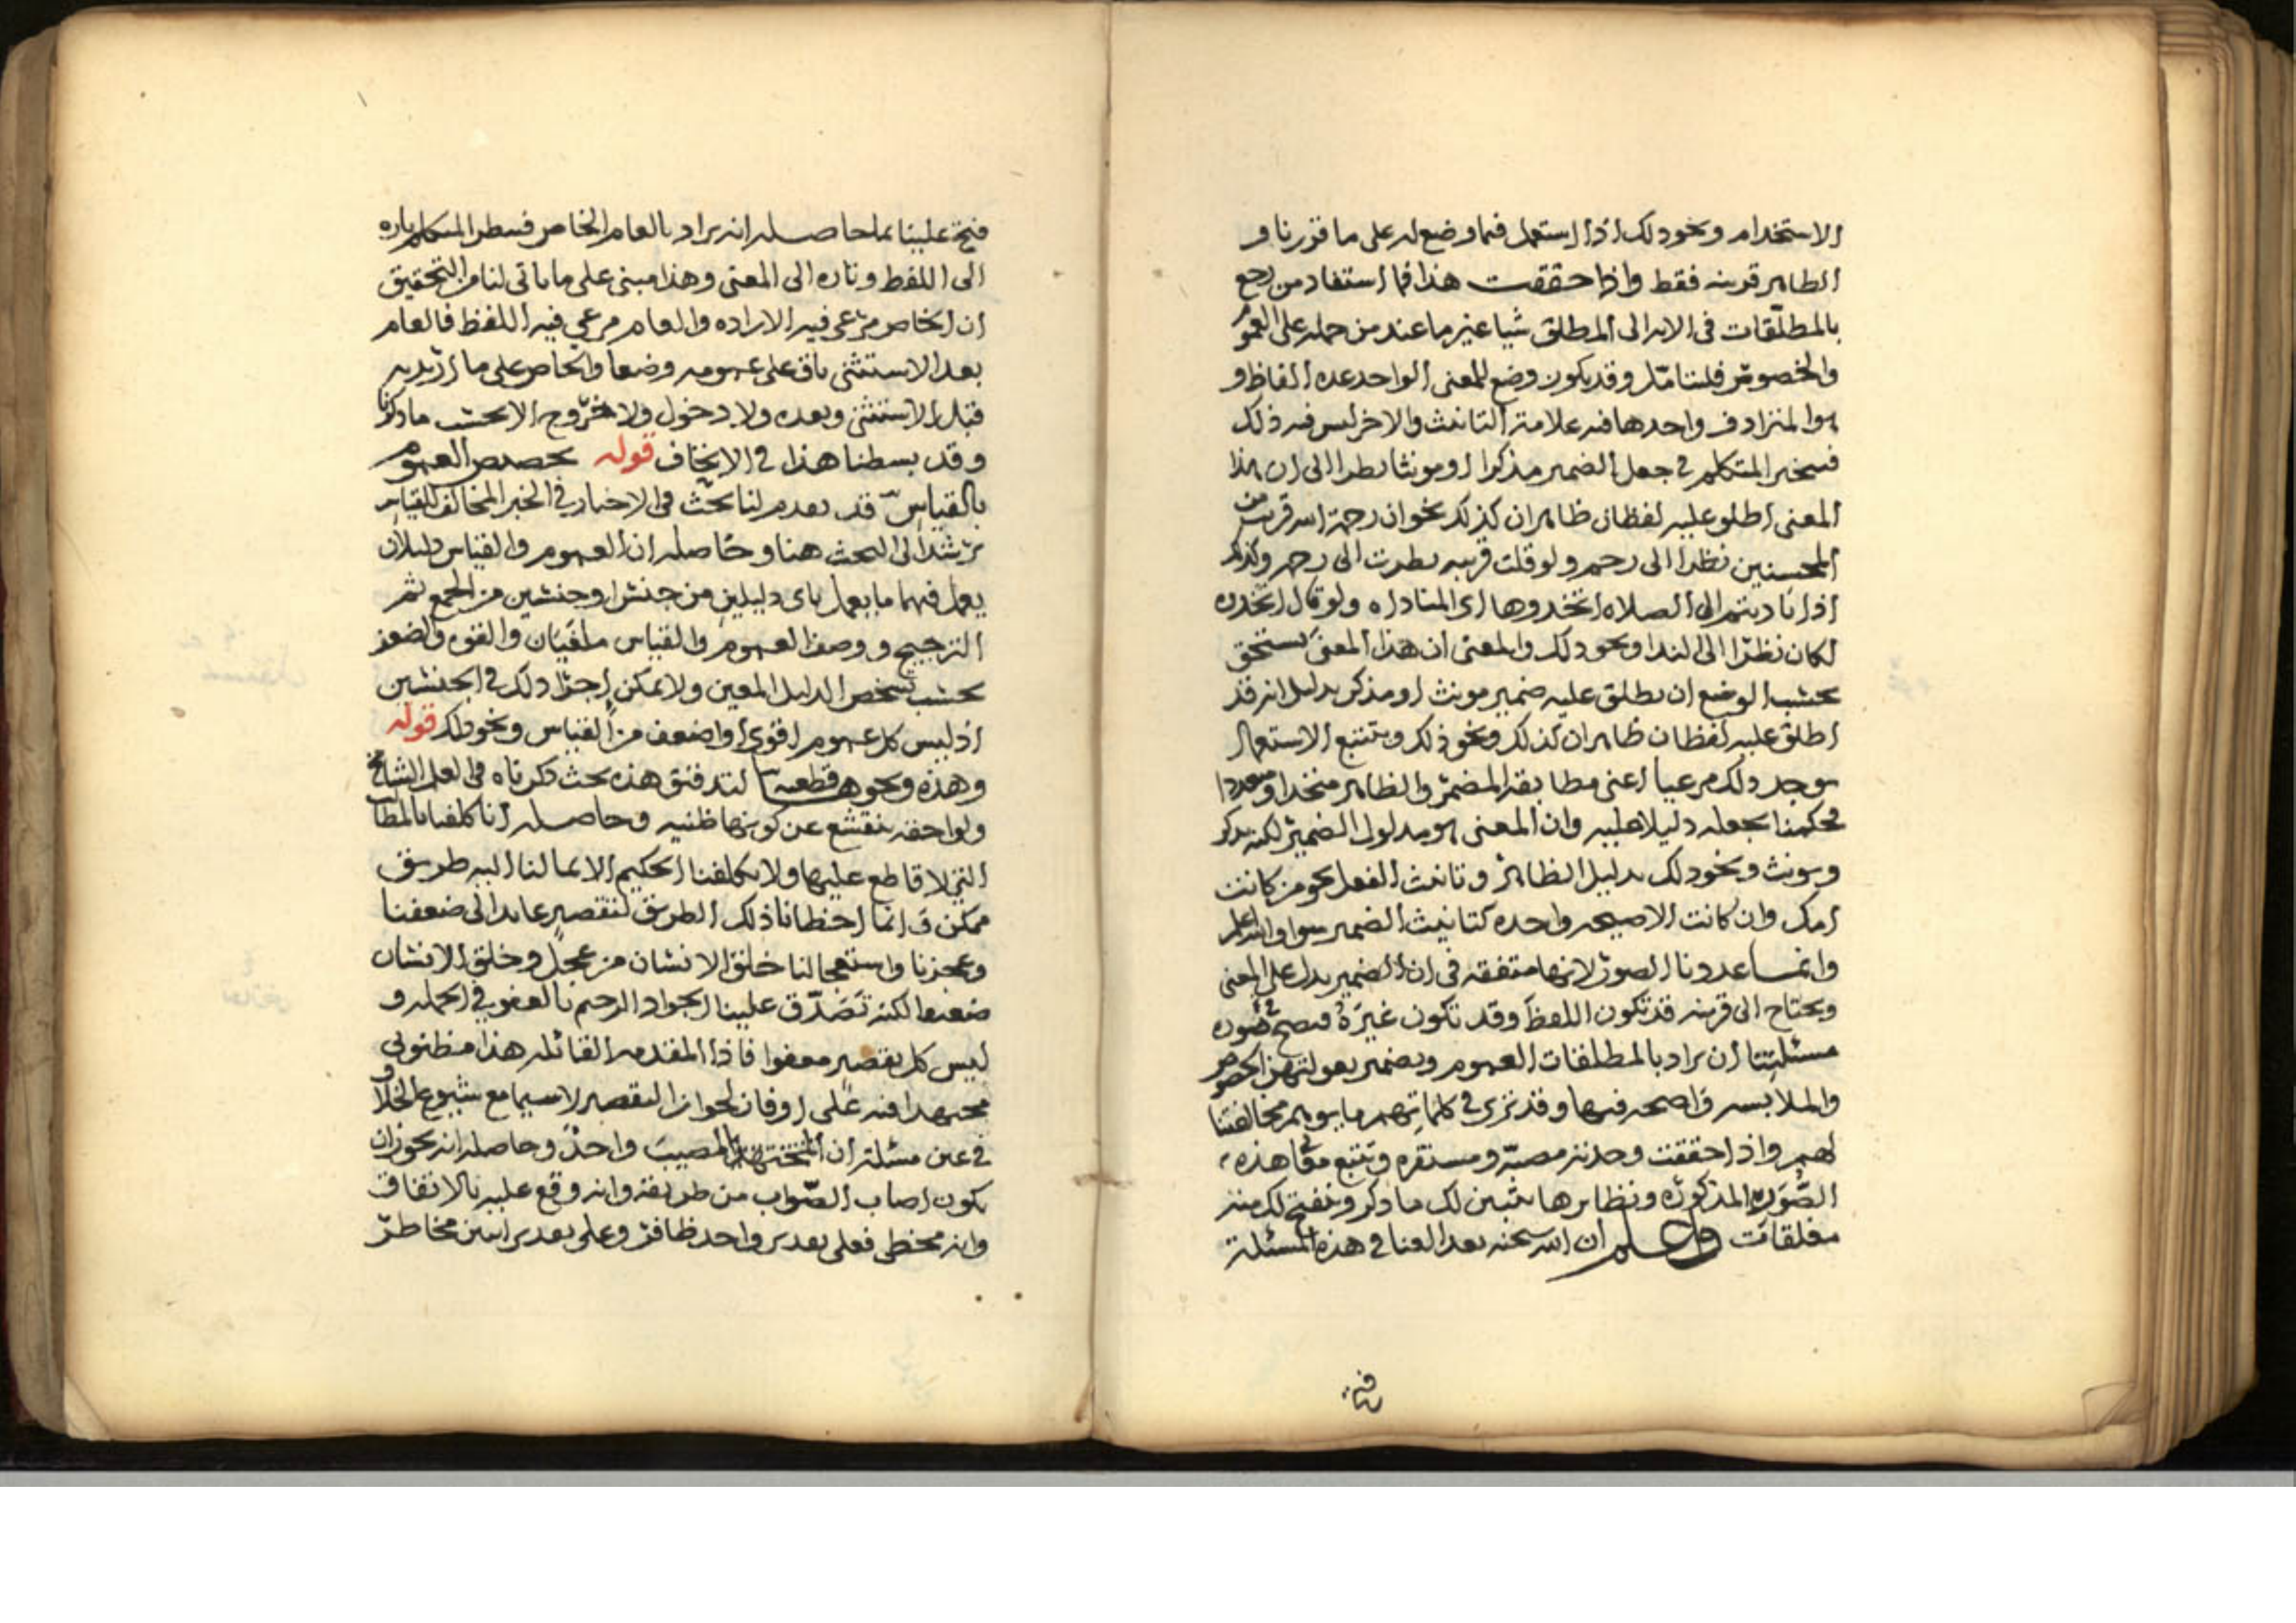 الاستخدام ونحو ذلك اذا استعمل فيما وضع له على ما قررنا و
الظاهر قرينه فقط واذا حققت هذا فما استفاد من رجع
بالمطلقات في الايه الى المطلق شيا غير ما عند من حمله على العموم
والخصوص فليتامل وقد يكون وضع للمعنى الواحد عده الفاظ و
هو المترادف واحدها فيه علامة التانيث والاخر ليس فيه ذلك
فيتخير المتكلم في جعل الضمير مذكرا او مونثا نظرا الى ان هذا
المعنى اطلق عليه لفظان ظاهران كذلك نحو ان رحمة الله قريب من
المحسنين نظرا الى رحم ولو قلت قريبه نظرت الى رحمه وكذلك
اذا ناديتم الى الصلاه اتخذوها اي المناداه ولو قال اتخذوه
لكان نظرا الى الندا ونحو ذلك والمعنى ان هذا المعنى يستحق
بحسب الوضع ان يطلق عليه ضمير مونث او مذكر بدليل انه قد
اطلق عليه لفظان ظاهران كذلك ونحو ذلك وتتبع الاستعمال
يوجد ذلك مرعيا اعني مطابقة المضمر والظاهر متحدا ومتعددا
فحكمنا بجعله دليلا عليه وان المعنى هو مدلول الضمير لكنه يذكر
ويونث ونحو ذلك بدليل الظاهر وتانيث الفعل نحو من كانت
امك وان كانت الا صيحه واحده كتانيث الضمير سوا والله اعلم
وانما عددنا الصور لانها متفقه في ان الضمير يدل على المعنى
ويحتاج الى قرينه قد تكون اللفظ وقد تكون غيره فيصح في صوره
مسئلتنا ان يراد بالمطلقات العموم وبضمير بعولتهن الخصوص
والملابسه واضحه فيها وقد ترى في كلماتهم ما يوهم مخالفتنا
لهم واذا حققت وجدته مصبه ومستقره وتتبع في هذه
الصور المذكوره ونظايرها يتبين لك ما ذكر وينفتح لك منه
مغلقات واعلم ان الله سبحنه بعد العنا في هذه المسئلة
فتح علينا بما حاصله انه يراد بالعام الخاص فينظر المتكلم تاره
الى اللفظ وتاره الى المعنى وهذا مبني على ما ياتي لنا من التحقيق
ان الخاص مرعي فيه الاراده والعام مرعي فيه اللفظ فالعام
بعد الاستثنى باق على عمومه وضعا والخاص على ما اريد به
قبل الاستثنى وبعده ولا دخول ولا خروج الا بحسب ما ذكرنا
وقد بسطنا هذا في الاتحاف قوله تخصيص العموم
بالقياس قد تقدم لنا بحث في الاخبار في الخبر المخالف للقياس
يرشد الى البحث هنا وحاصله ان العموم والقياس دليلان
يعمل فيهما ما يعمل باي دليلين من جنس او جنسين من الجمع ثم
الترجيح ووصفا العموم والقياس ملغيان والقوه والضعف
بحسب تشخص الدليل المعين ولا يمكن اجرا ذلك في الجنسين
اذ ليس كل عموم اقوى او اضعف من القياس ونحو ذلك قوله
وهذه ونحوها قطعيه لتدقيق هذه بحث ذكرناه في العلم الشامخ
ولواحقه ينقشع عن كونها ظنيه وحاصله انا كلفنا بالمطالب
التي لا قاطع عليها ولا يكلفنا الحكيم الا بما لنا اليه طريق
ممكن وانما اخطانا ذلك الطريق لتقصير عايد الى ضعفنا
وعجزنا واستعجالنا خلق الانسان من عجل وخلق الانسان
ضعيفا لكنه تصدق علينا الجواد الرحيم بالعفو في الجمله و
ليس كل تقصير معفوا فاذا المقدمه القائله هذا مظنوني
مجتهدا فيه على لجواز التقصير لا سيما مع شيوع الخلاف
في عين مسئلة ان المصيب واحد وحاصله انه يجوز ان
يكون اصاب الصواب من طريقه وانه وقع عليه بالاتفاق
وانه مخطي فعلى تقدير واحد ظافر وعلى تقديرين اثنين مخاطر